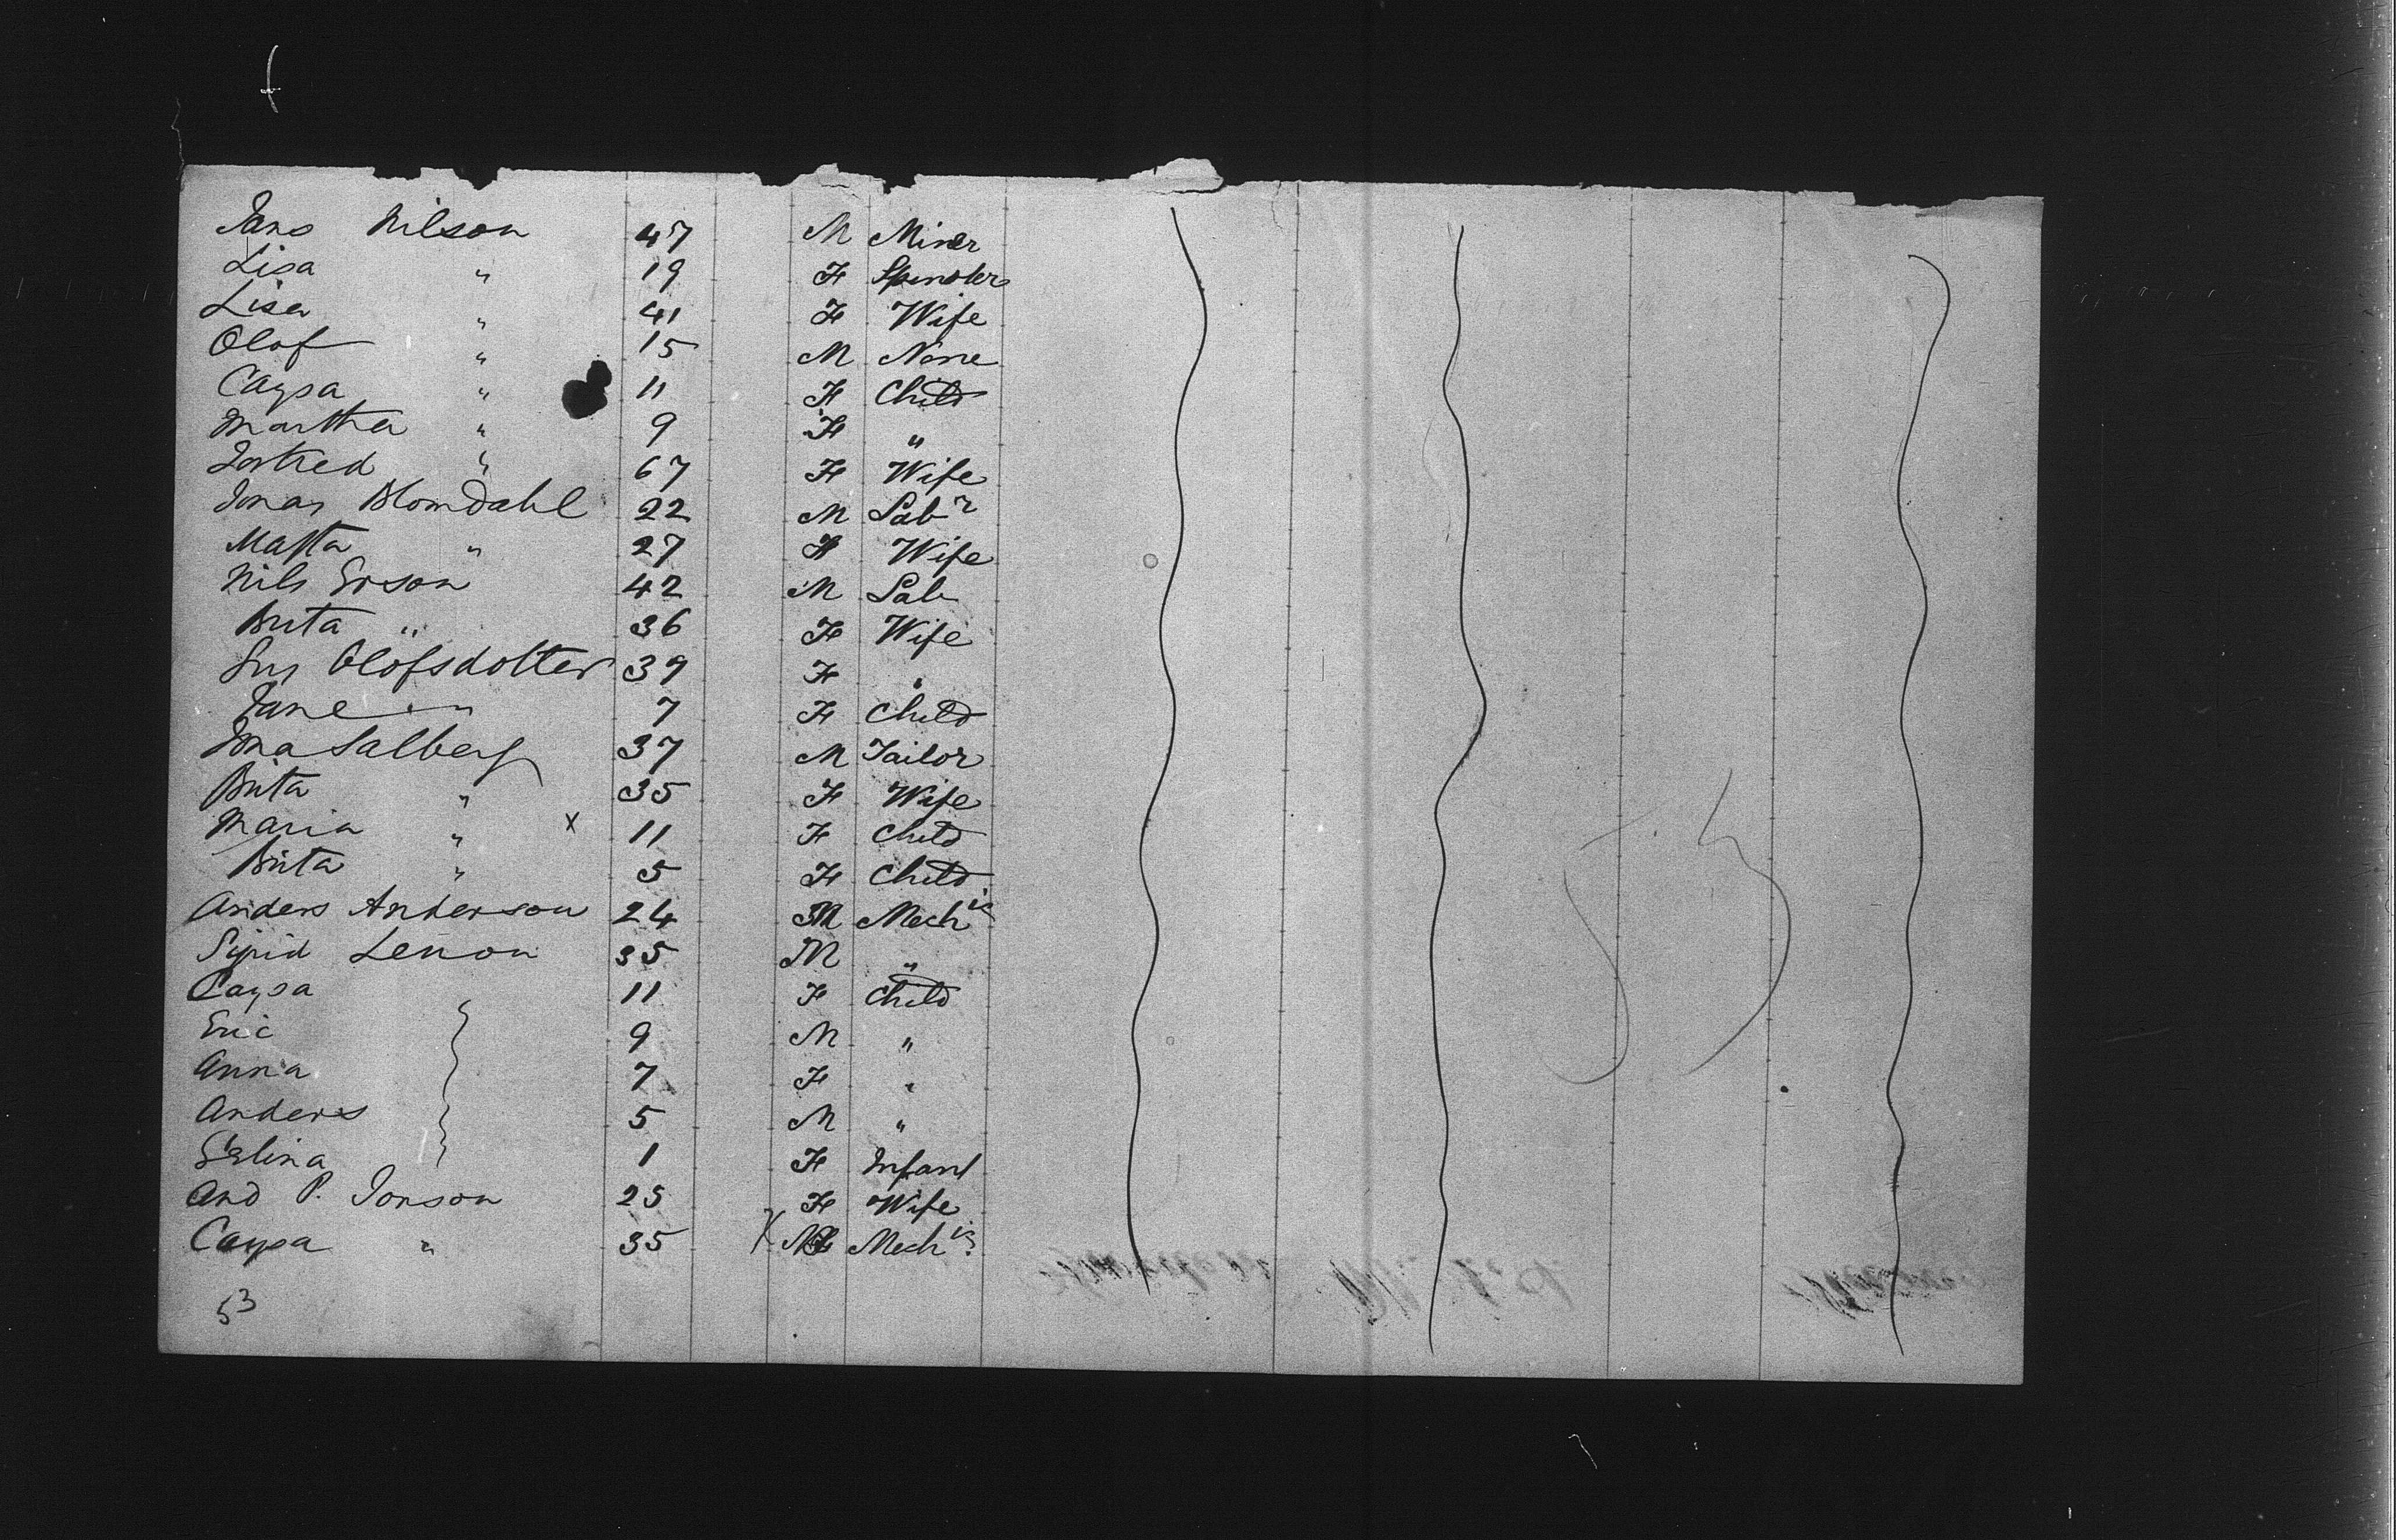 Jans Nilson 47 M Miner
Lisa " 19 F Spinster
Lisa " 41 F Wife
Olof " 15 M None
Caysa " 11 F Child
Martha " 9 F "
" 67 F Wife
Jonas Blomdahl 22 M Labr
Marta " 27 F Wife
Nils Erson 42 M Lab
Brita " 36 F Wife
Olofsdotter 39 F "
Jane " 7 F Child
Salberg 37 M Tailor
Brita " 35 F Wife
Maria " x 11 F Child
Brita " 5 F Child
Anders Anderson 24 M Mechic
Sigrid 35 M "
Caysa 11 F Child
Eric 9 M "
Anna 7 F "
Anders 5 M "
1 F Infant
And P. Jonson 25 F Wife
Caysa " 35 X M Mechic
53